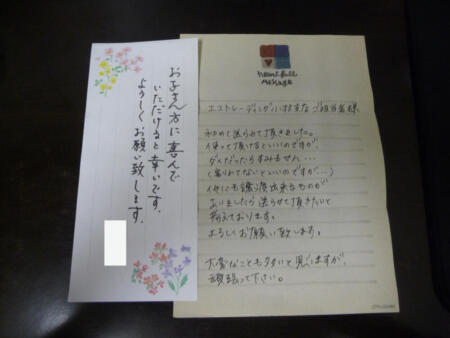 お子さん方に喜んで
いただけると幸いです。
よろしくお願い致します。
heart full
message
エコトレーディング小牧支店ご担当者様
初めて送らせて頂きました。
使って頂けるといいのですが、
ダメだったらすみません…
(割れてないといいのですが…)
他にも譲渡出来るものが
ありましたら送らせて頂きたいと
考えております。
よろしくお願い致します。
大変なことも多いと思いますが、
頑張って下さい。